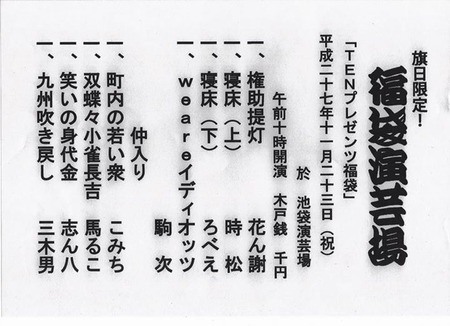 旗日限定！
福袋演芸場
「TENプレゼンツ福袋」
平成二十七年十一月二十三日（祝）
於　池袋演芸場
午前十時開演　木戸銭　千円
一、権助提灯　花ん謝
一、寝床（上）　時松
一、寝床（下）　ろべえ
一、weareイディオッツ
駒次
仲入り
一、町内の若い衆　こみち
一、双蝶々小雀長吉　馬るこ
一、笑いの身代金　志ん八
一、九州吹き戻し　三木男